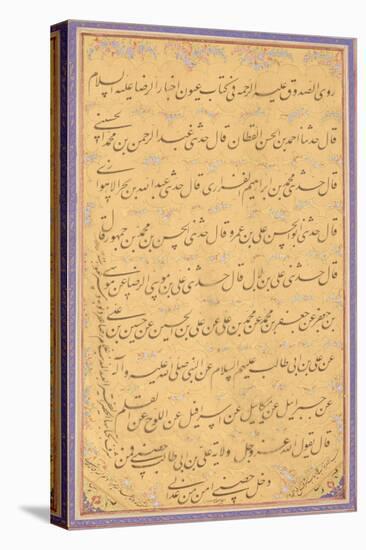 روى الصدوق عليه الرحمه فى كتاب عيون اخبار الرضا عليه السلام
قال حدثنا احمد بن الحسن القطان قال حدثنى عبد الرحمن بن محمد الحسينى
قال حدثنى محمد بن ابراهيم الفزارى قال حدثنى عبد الله بن بحر الاهوازى
قال حدثنى ابو الحسن على بن عمرو قال حدثنى الحسن بن محمد بن جمهور قال
قال حدثنى على بن بلال قال حدثنى على بن موسى الرضا عن موسى
بن جعفر عن جعفر بن محمد عن محمد بن على عن على بن الحسين عن حسين بن على
عن على بن ابى طالب عليهم السلام عن النبى صلى الله عليه و آله
عن جبرائيل عن ميكائيل عن اسرافيل عن اللوح عن القلم
قال يقول الله عز و جل ولاية على بن ابى طالب حصنى فمن
دخل حصنى امن من عذابى